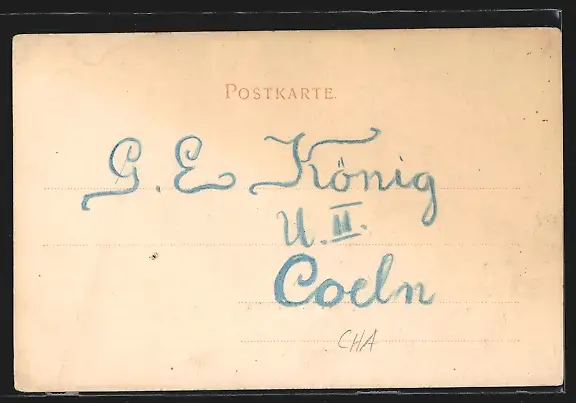 POSTKARTE.
G. E. König
U. II.
Coeln
CHA